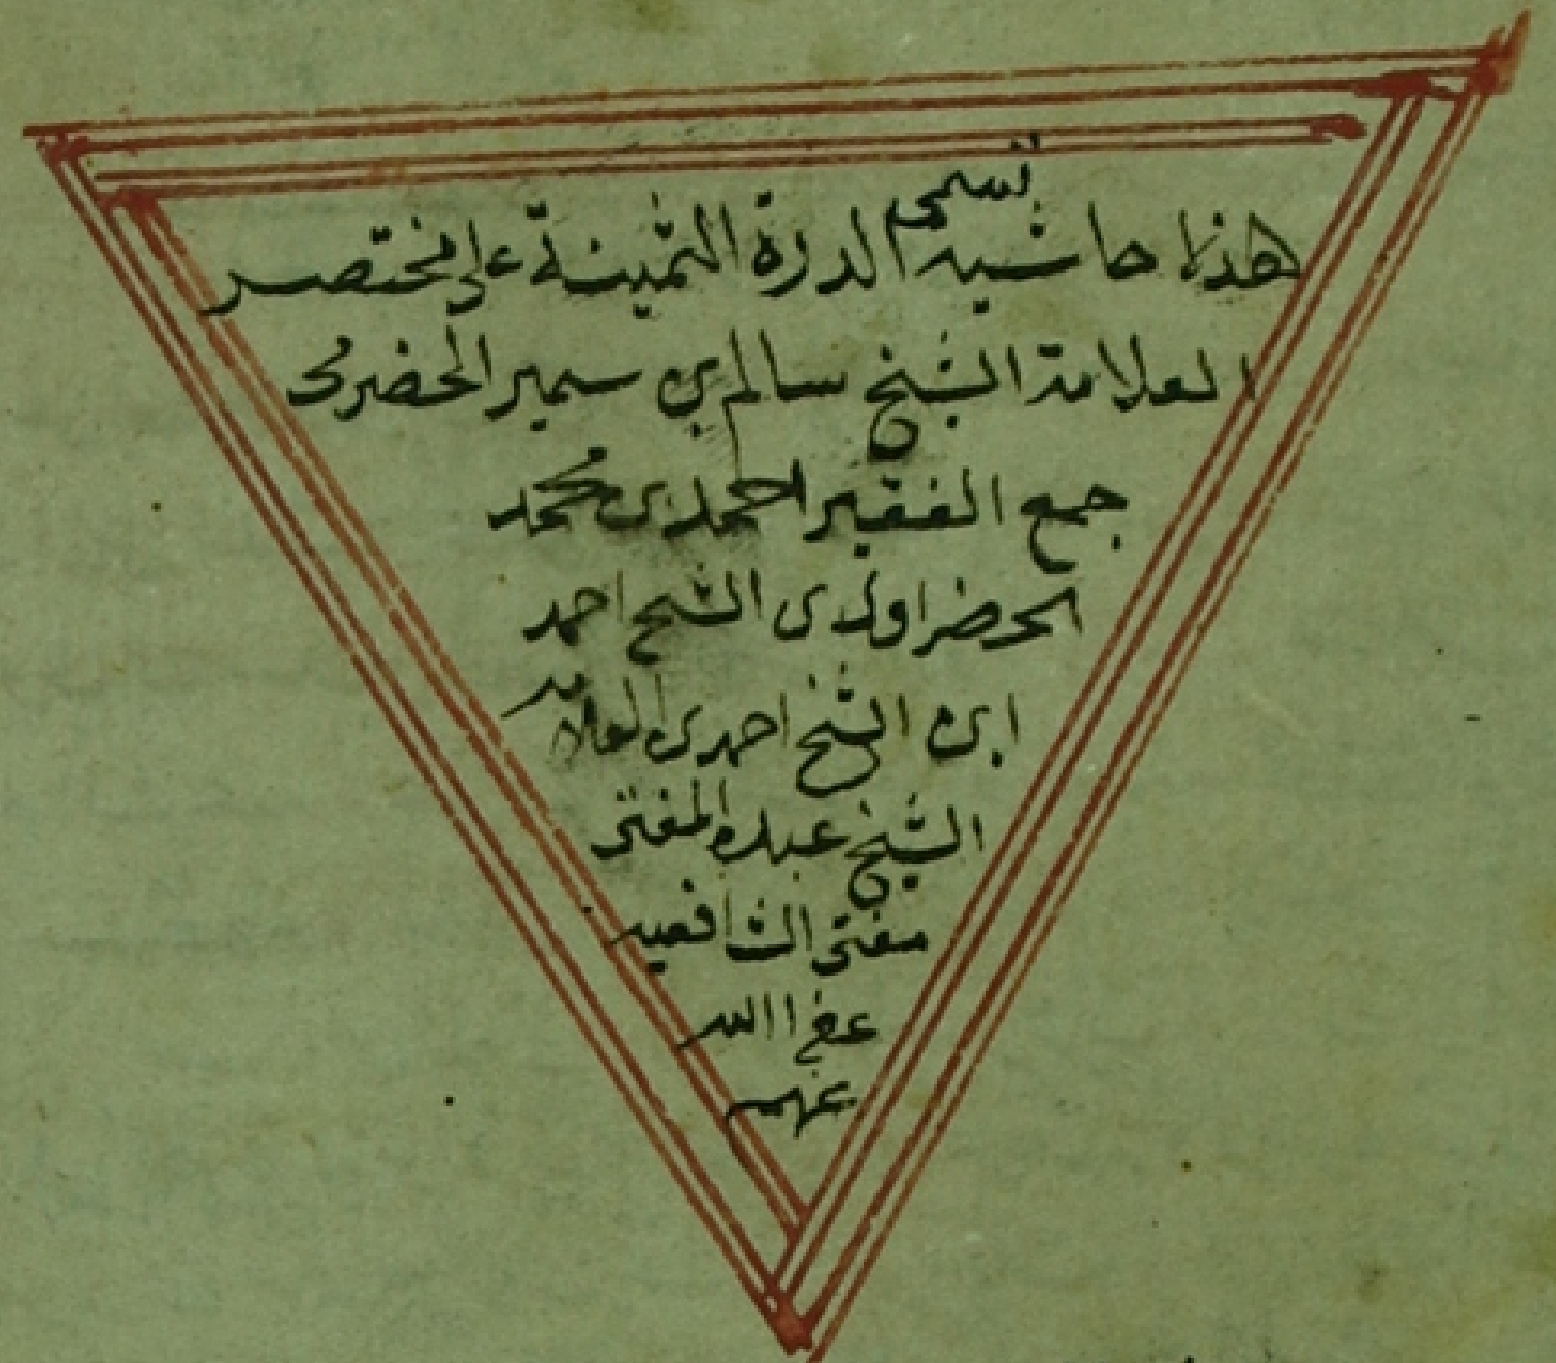 هذا حاشية تسمى الدرة الثمينة على مختصر
العلامة الشيخ سالم بن سمير الحضرمى
جمع الفقير احمد بن محمد
الحضراوى الشيخ احمد
ابن الشيخ احمد بن العلامة
الشيخ عبده المفتى
مفتى الشافعيه
عفى الله
عنهم